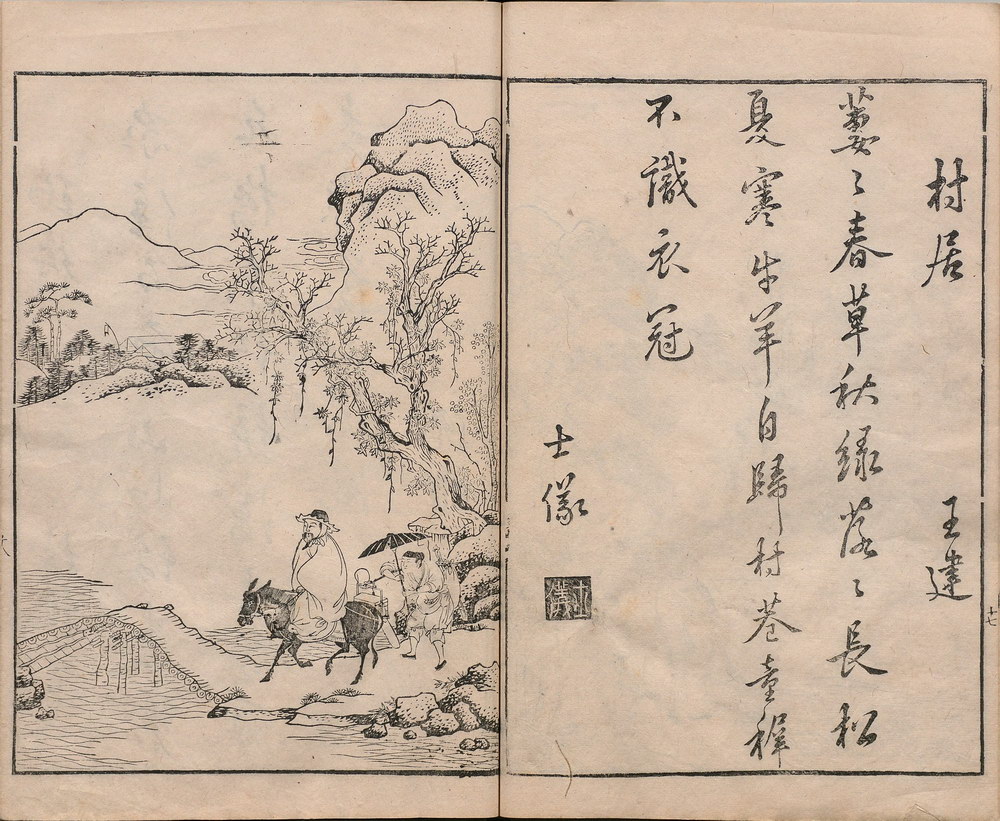 村居 王建
萋〻春草秋綠落〻長松
夏寒牛羊自歸村巷童稺
不識衣冠
士儀
士儀
十七